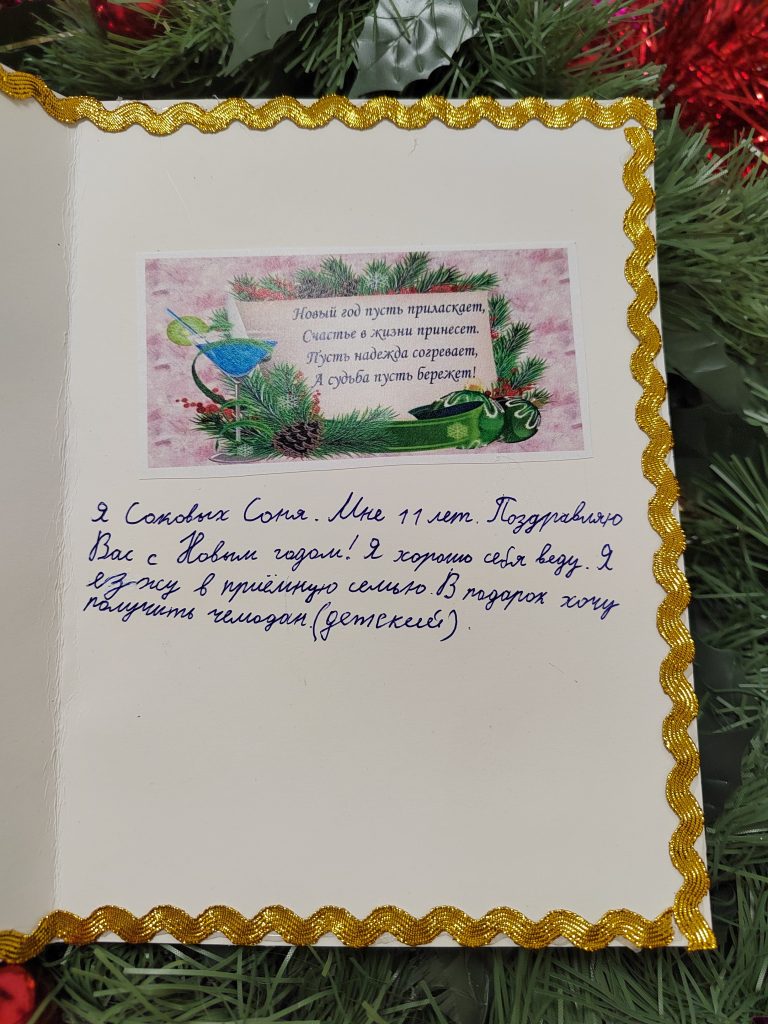 Новый год пусть приласкает,
Счастье в жизни принесет.
Пусть надежда согревает,
А судьба пусть бережет!
Я Соковых Соня. Мне 11 лет. Поздравляю
Вас с Новым годом! Я хорошо себя веду. Я
езжу в приёмную семью. В подарок хочу
получить чемодан.(детский)